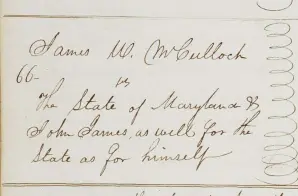 James W. McCulloch
66- vs
The State of Maryland &
John James, as well for the
State as for himself